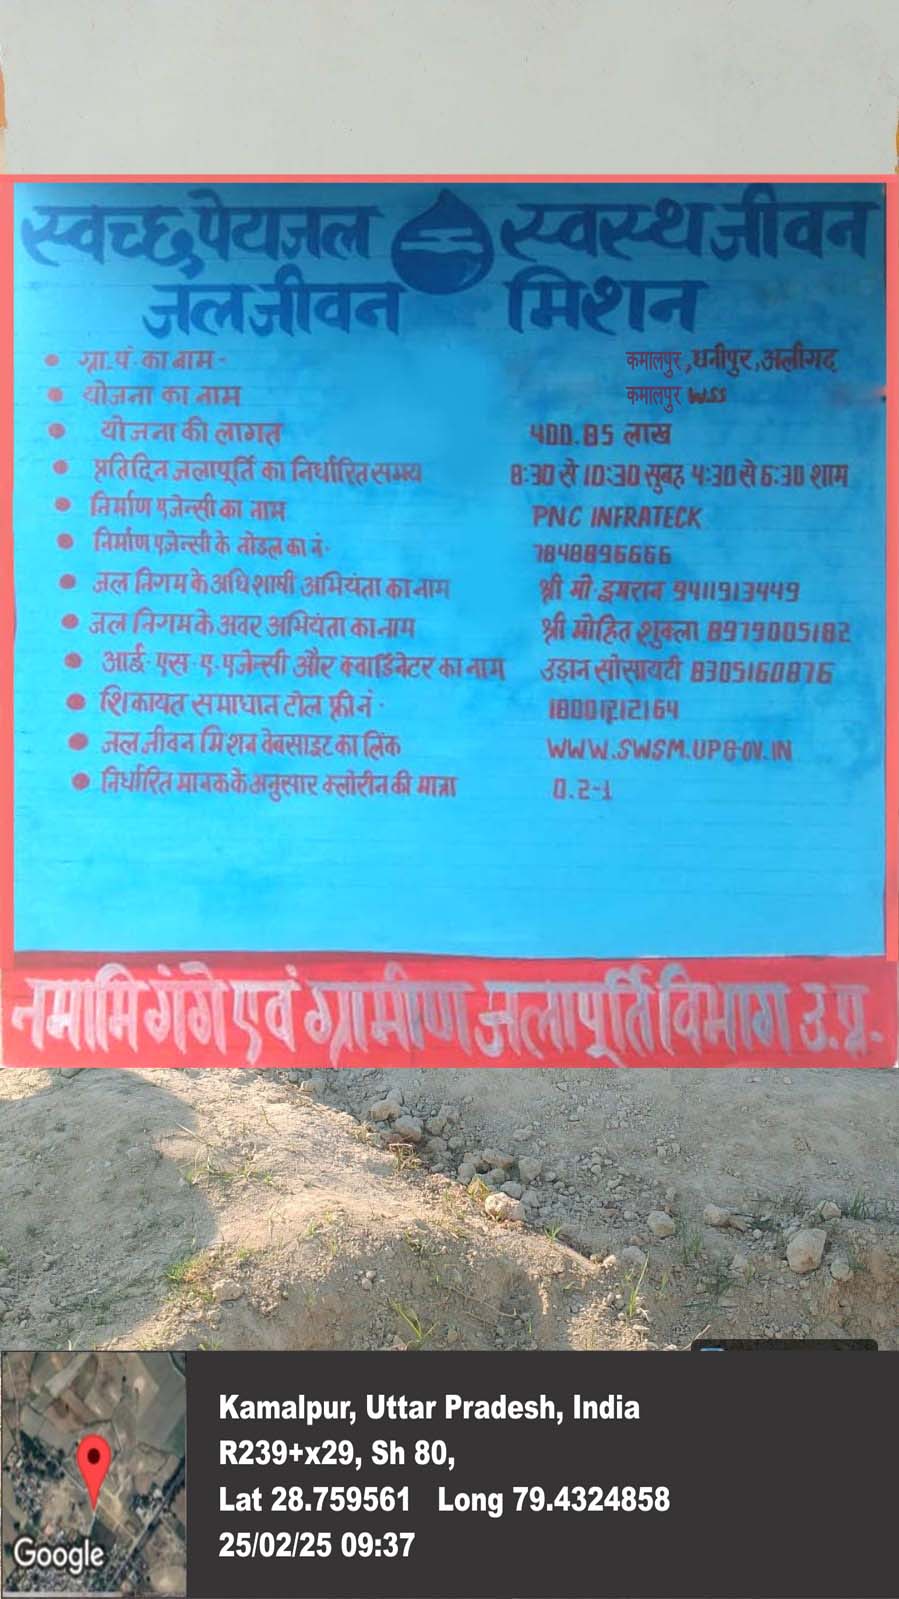 स्वच्छ पेयजल स्वस्थ जीवन
जल जीवन मिशन
ग्रा.पं. का नाम - कमालपुर, धनीपुर, अलीगढ़
योजना का नाम कमालपुर WSS
योजना की लागत 400.85 लाख
प्रतिदिन जलापूर्ति का निर्धारित समय 8:30 से 10:30 सुबह 4:30 से 6:30 शाम
निर्माण एजेन्सी का नाम PNC INFRATECK
निर्माण एजेन्सी के नोडल का नं. 7848896666
जल निगम के अधिशाषी अभियंता का नाम श्री मो. इमरान 9411913449
जल निगम के अवर अभियंता का नाम श्री मोहित शुक्ला 8979005182
आई. एस. ए. एजेन्सी और क्वार्डिनेटर का नाम उड़ान सोसायटी 8305160876
शिकायत समाधान टोल फ्री नं. 18001212164
जल जीवन मिशन वेबसाइट का लिंक WWW.SWSM.UPGOV.IN
निर्धारित मानक के अनुसार क्लोरीन की मात्रा 0.2-1
नमामि गंगे एवं ग्रामीण जलापूर्ति विभाग उ.प्र.
Kamalpur, Uttar Pradesh, India
R239+x29, Sh 80,
Lat 28.759561 Long 79.4324858
25/02/25 09:37
Google